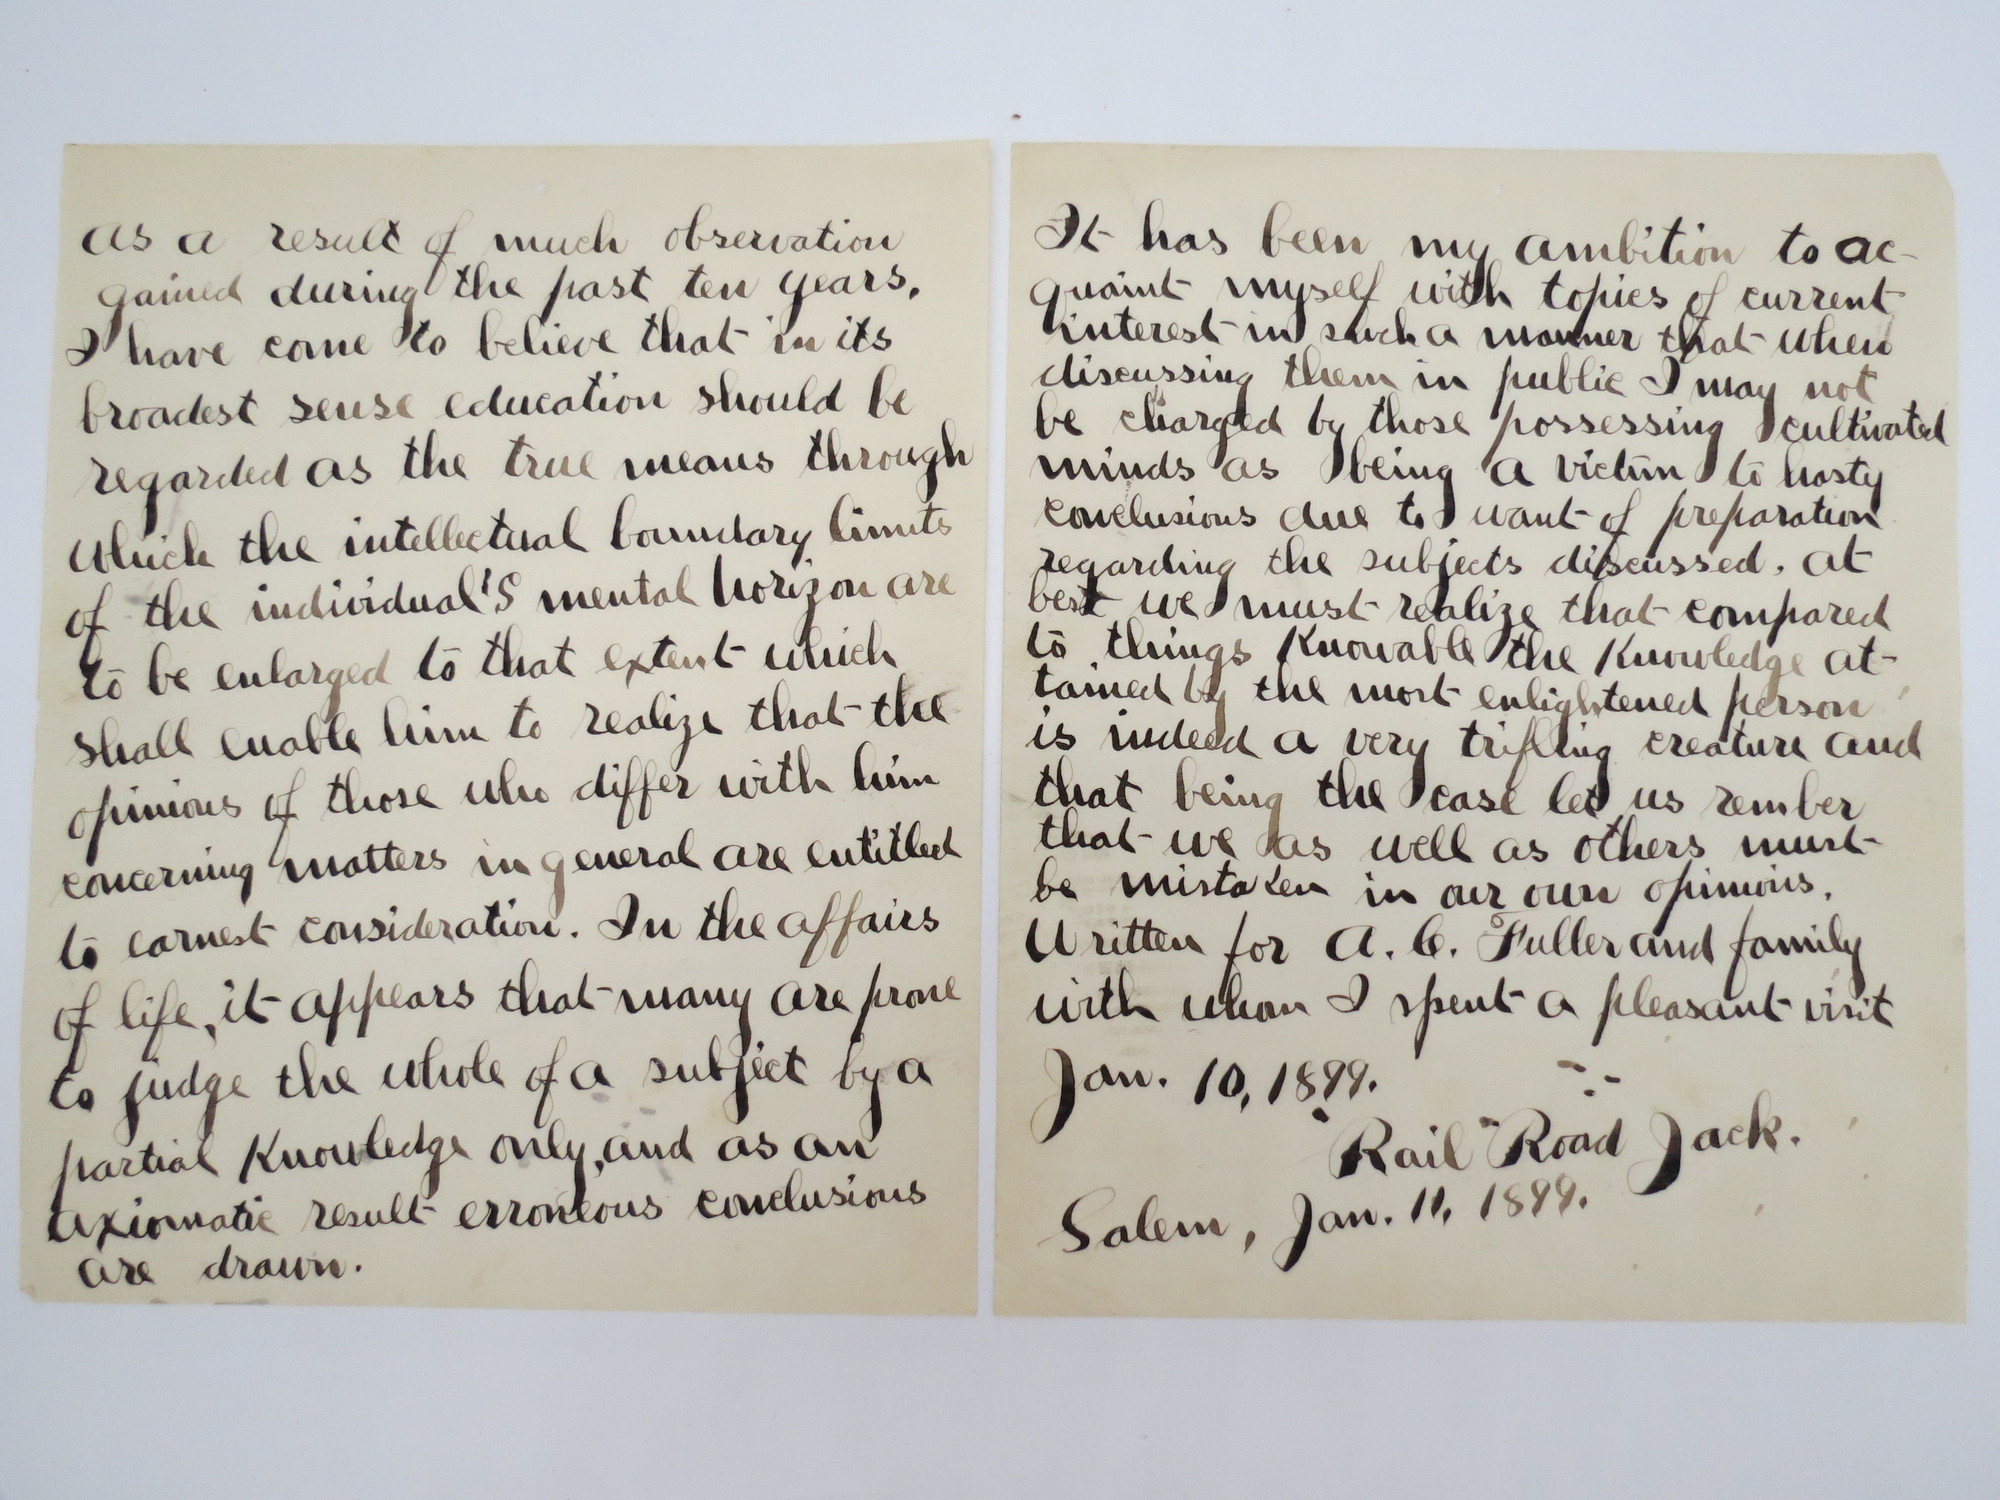 as a result of much observation
gained during the past ten years,
I have come to believe that in its
broadest sense education should be
regarded as the true means through
which the intellectual boundary limits
of the individual's mental horizon are
to be enlarged to that extent which
shall enable him to realize that the
opinions of those who differ with him
concerning matters in general are entitled
to earnest consideration. In the affairs
of life, it appears that many are prone
to judge the whole of a subject by a
partial Knowledge only, and as an
axiomatic result erroneous conclusions
are drawn.
It has been my ambition to ac-
quaint myself with topics of current
interest in such a manner that when
discussing them in public I may not
be charged by those possessing cultivated
minds as being a victim to hasty
conclusions due to want of preparation
regarding the subjects discussed. at
best we must realize that compared
to things Knowable the Knowledge at-
tained by the most enlightened person
is indeed a very trifling creature and
that being the case let us rember
that we as well as others must
be mistaken in our own opinions.
Written for A. C. Fuller and family
with whom I spent a pleasant visit
Jan. 10, 1899.
"Rail" Road Jack.
Salem, Jan. 11, 1899.